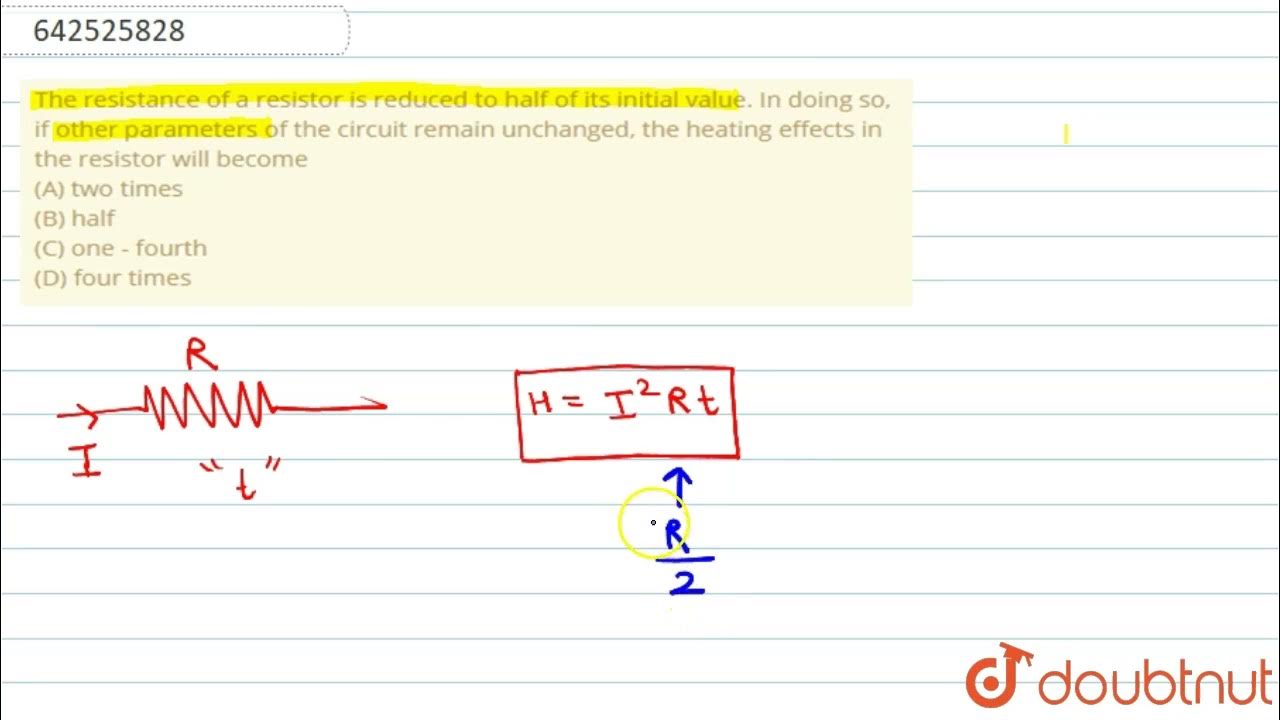 642525828
The resistance of a resistor is reduced to half of its initial value. In doing so,
if other parameters of the circuit remain unchanged, the heating effects in
the resistor will become
(A) two times
(B) half
(C) one - fourth
(D) four times
R
I
"t"
H = I² R t
R
2
doubtnut